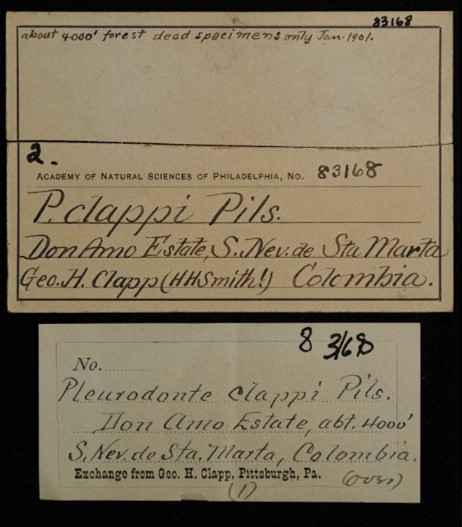 83168
about 4000' forest dead specimens only Jan. 1901.
2.
ACADEMY OF NATURAL SCIENCES OF PHILADELPHIA, NO. 83168
P. clappi Pils.
Don Amo Estate, S. Nev. de Sta Marta
Geo. H. Clapp (HHSmith!) Colombia.
83168
No.
Pleurodonte clappi Pils.
Don Amo Estate, abt. 4000'
S. Nev. de Sta. Marta, Colombia.
Exchange from Geo. H. Clapp, Pittsburgh, Pa.
(1) (over)